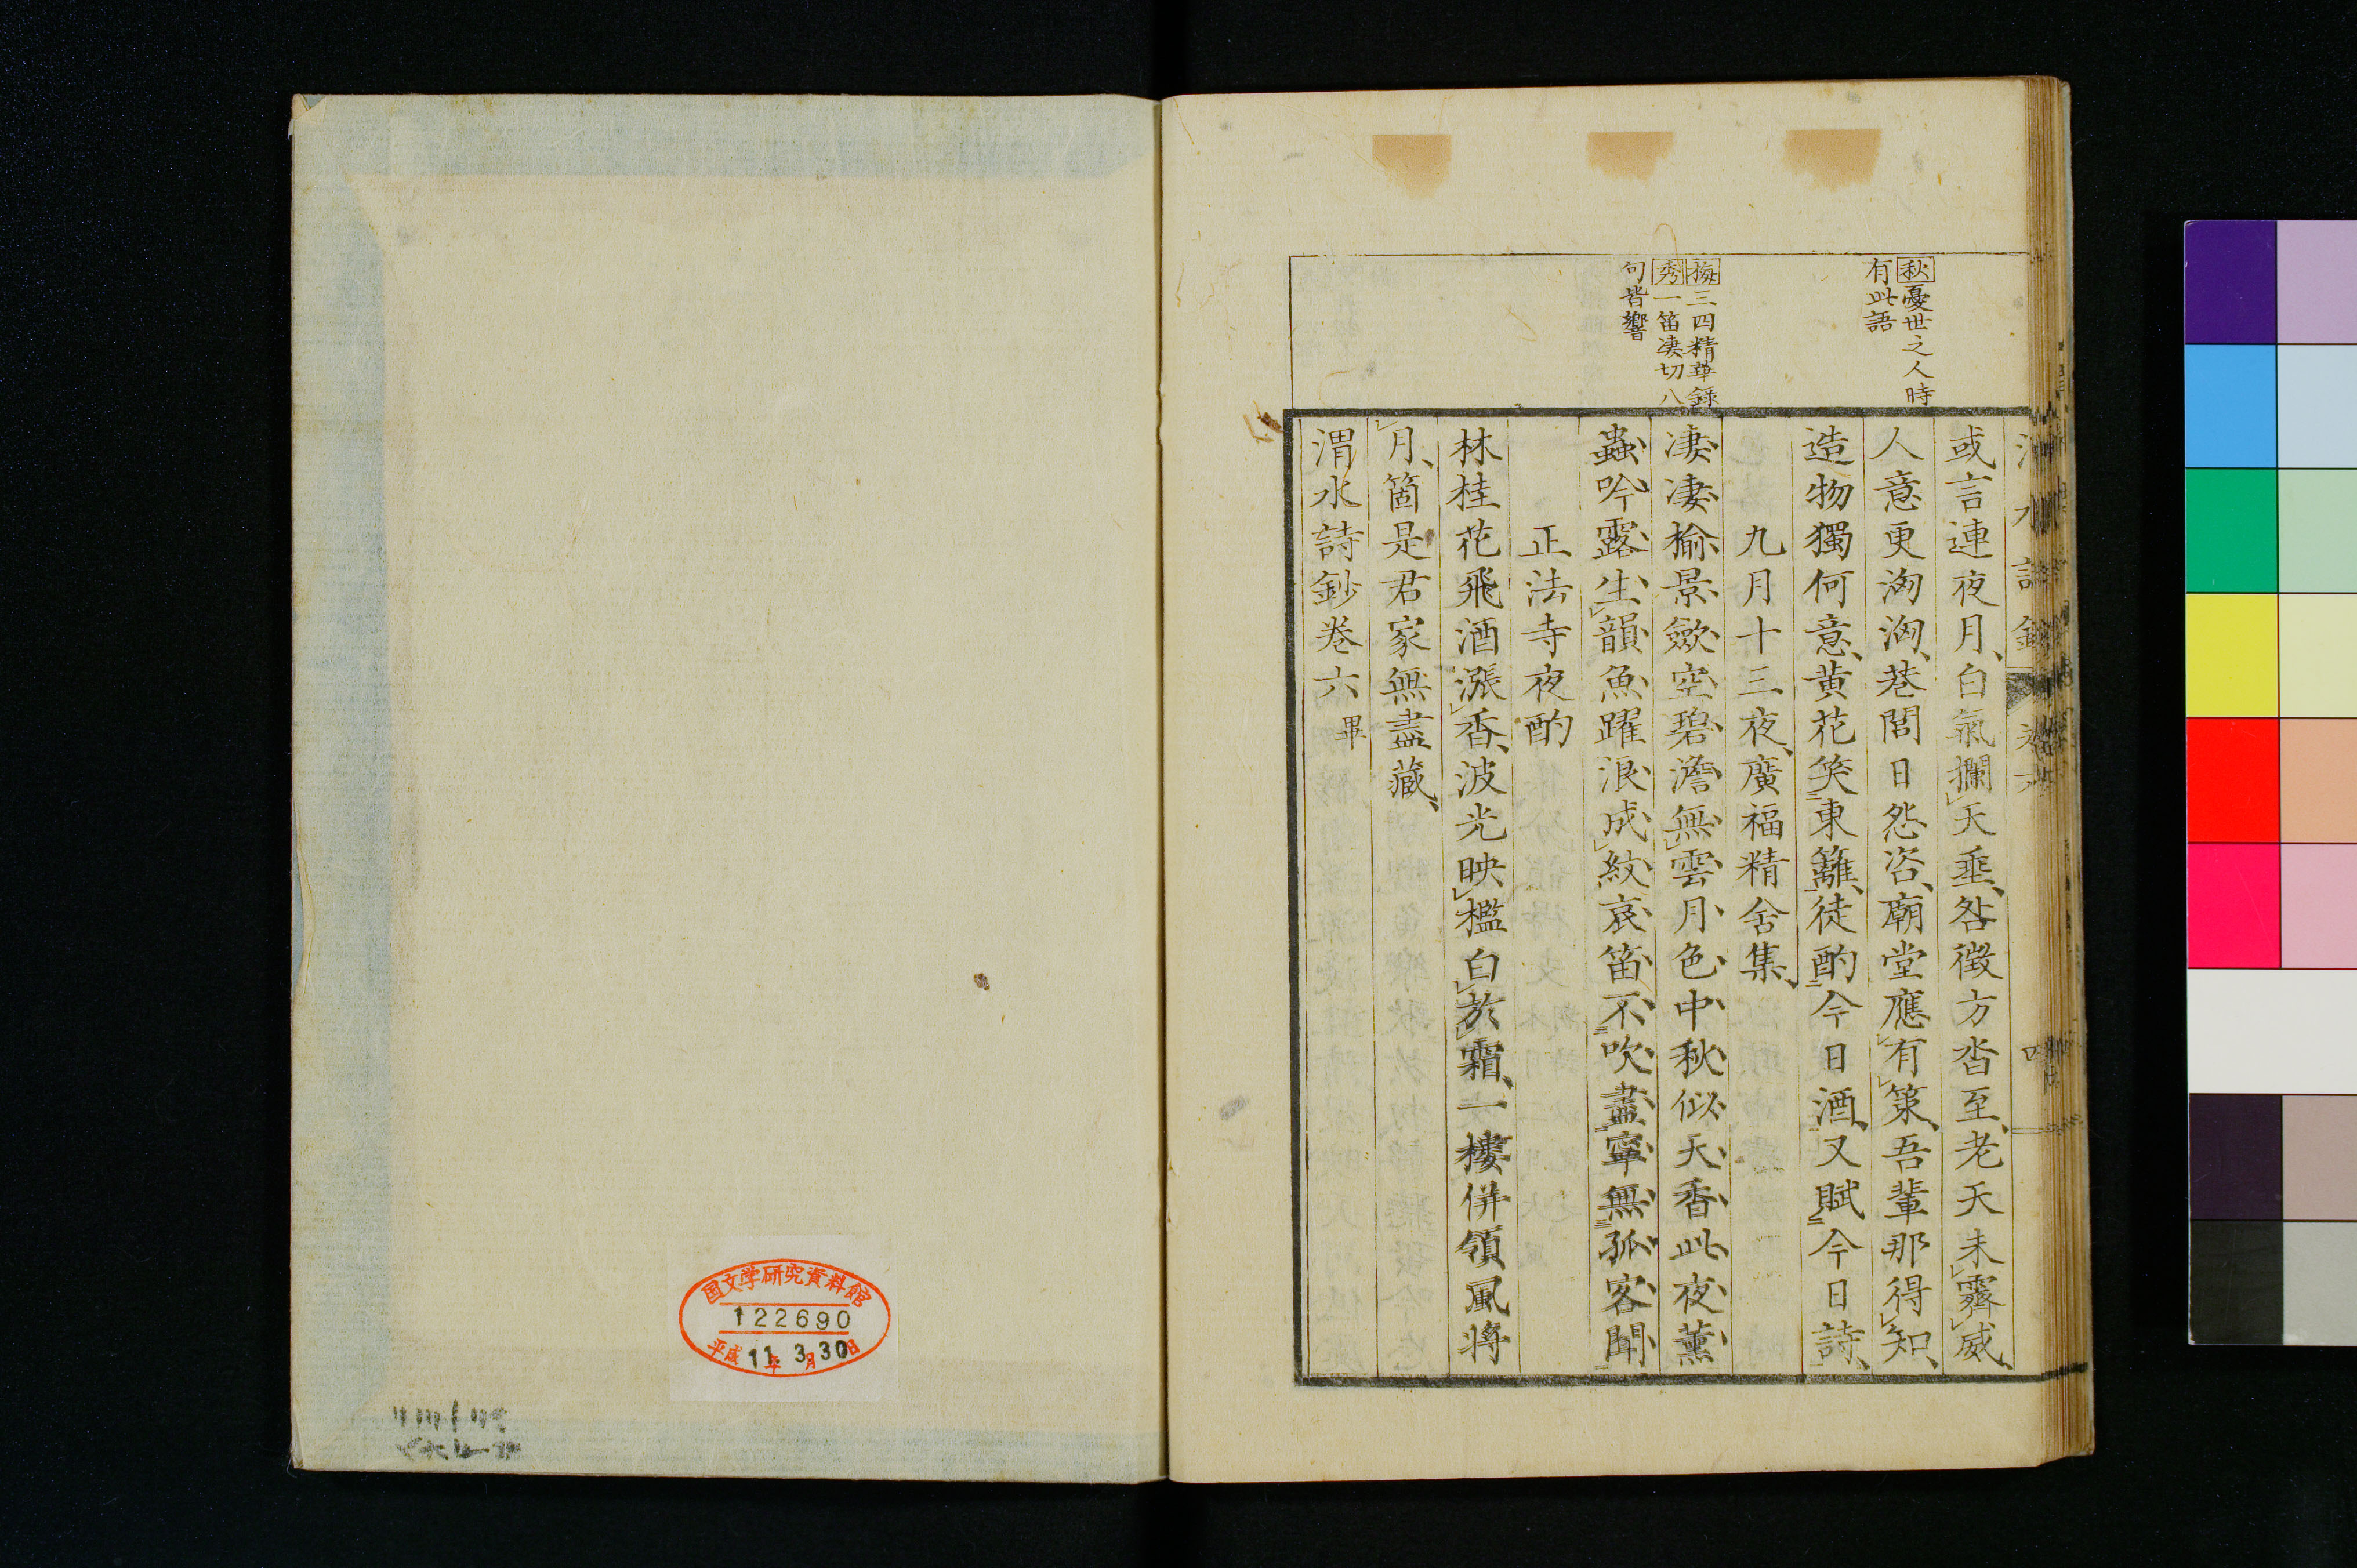 秋憂世之人時
有此語
梅三四精華錄
秀一笛凄切八
句皆響
或言連夜月白氣攔天垂咎徵方沓至老天未霽威
人意更洶洶巷閭日怨咨廟堂應有策吾輩那得知
造物獨何意黄花笑東籬徒酌今日酒又賦今日詩
九月十三夜廣福精舍集
凄凄楡景斂空碧澹無雲月色中秋似天香此夜薰
蟲吟露生韻魚躍浪成紋哀笛不吹盡寧無孤客聞
正法寺夜酌
林桂花飛酒漲香波光映檻白於霜一樓併領風將
月箇是君家無盡藏
渭水詩鈔卷六 畢
国文学研究資料館
122690
平成11年3月30日